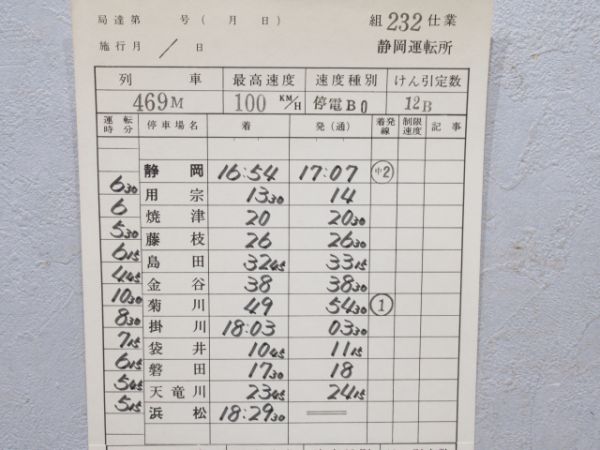 局達第 号( 月 日) 組 232 仕業
施行月 / 日 静岡運転所
列 車 最高速度 速度種別 けん引定数
469M 100 KM/H 停電B0 12B
運転時分 停車場名 着 発(通) 着発線 制限速度 記事
静岡 16:54 17:07 中2
6 30
用宗 13 30 14
6
焼津 20 20 30
5 30
藤枝 26 26 30
6 15
島田 32 45 33 15
4 45
金谷 38 38 30
10 30
菊川 49 54 30 1
8 30
掛川 18:03 03 30
7 15
袋井 10 45 11 15
6 15
磐田 17 30 18
5 45
天竜川 23 45 24 15
5 15
浜松 18:29 30